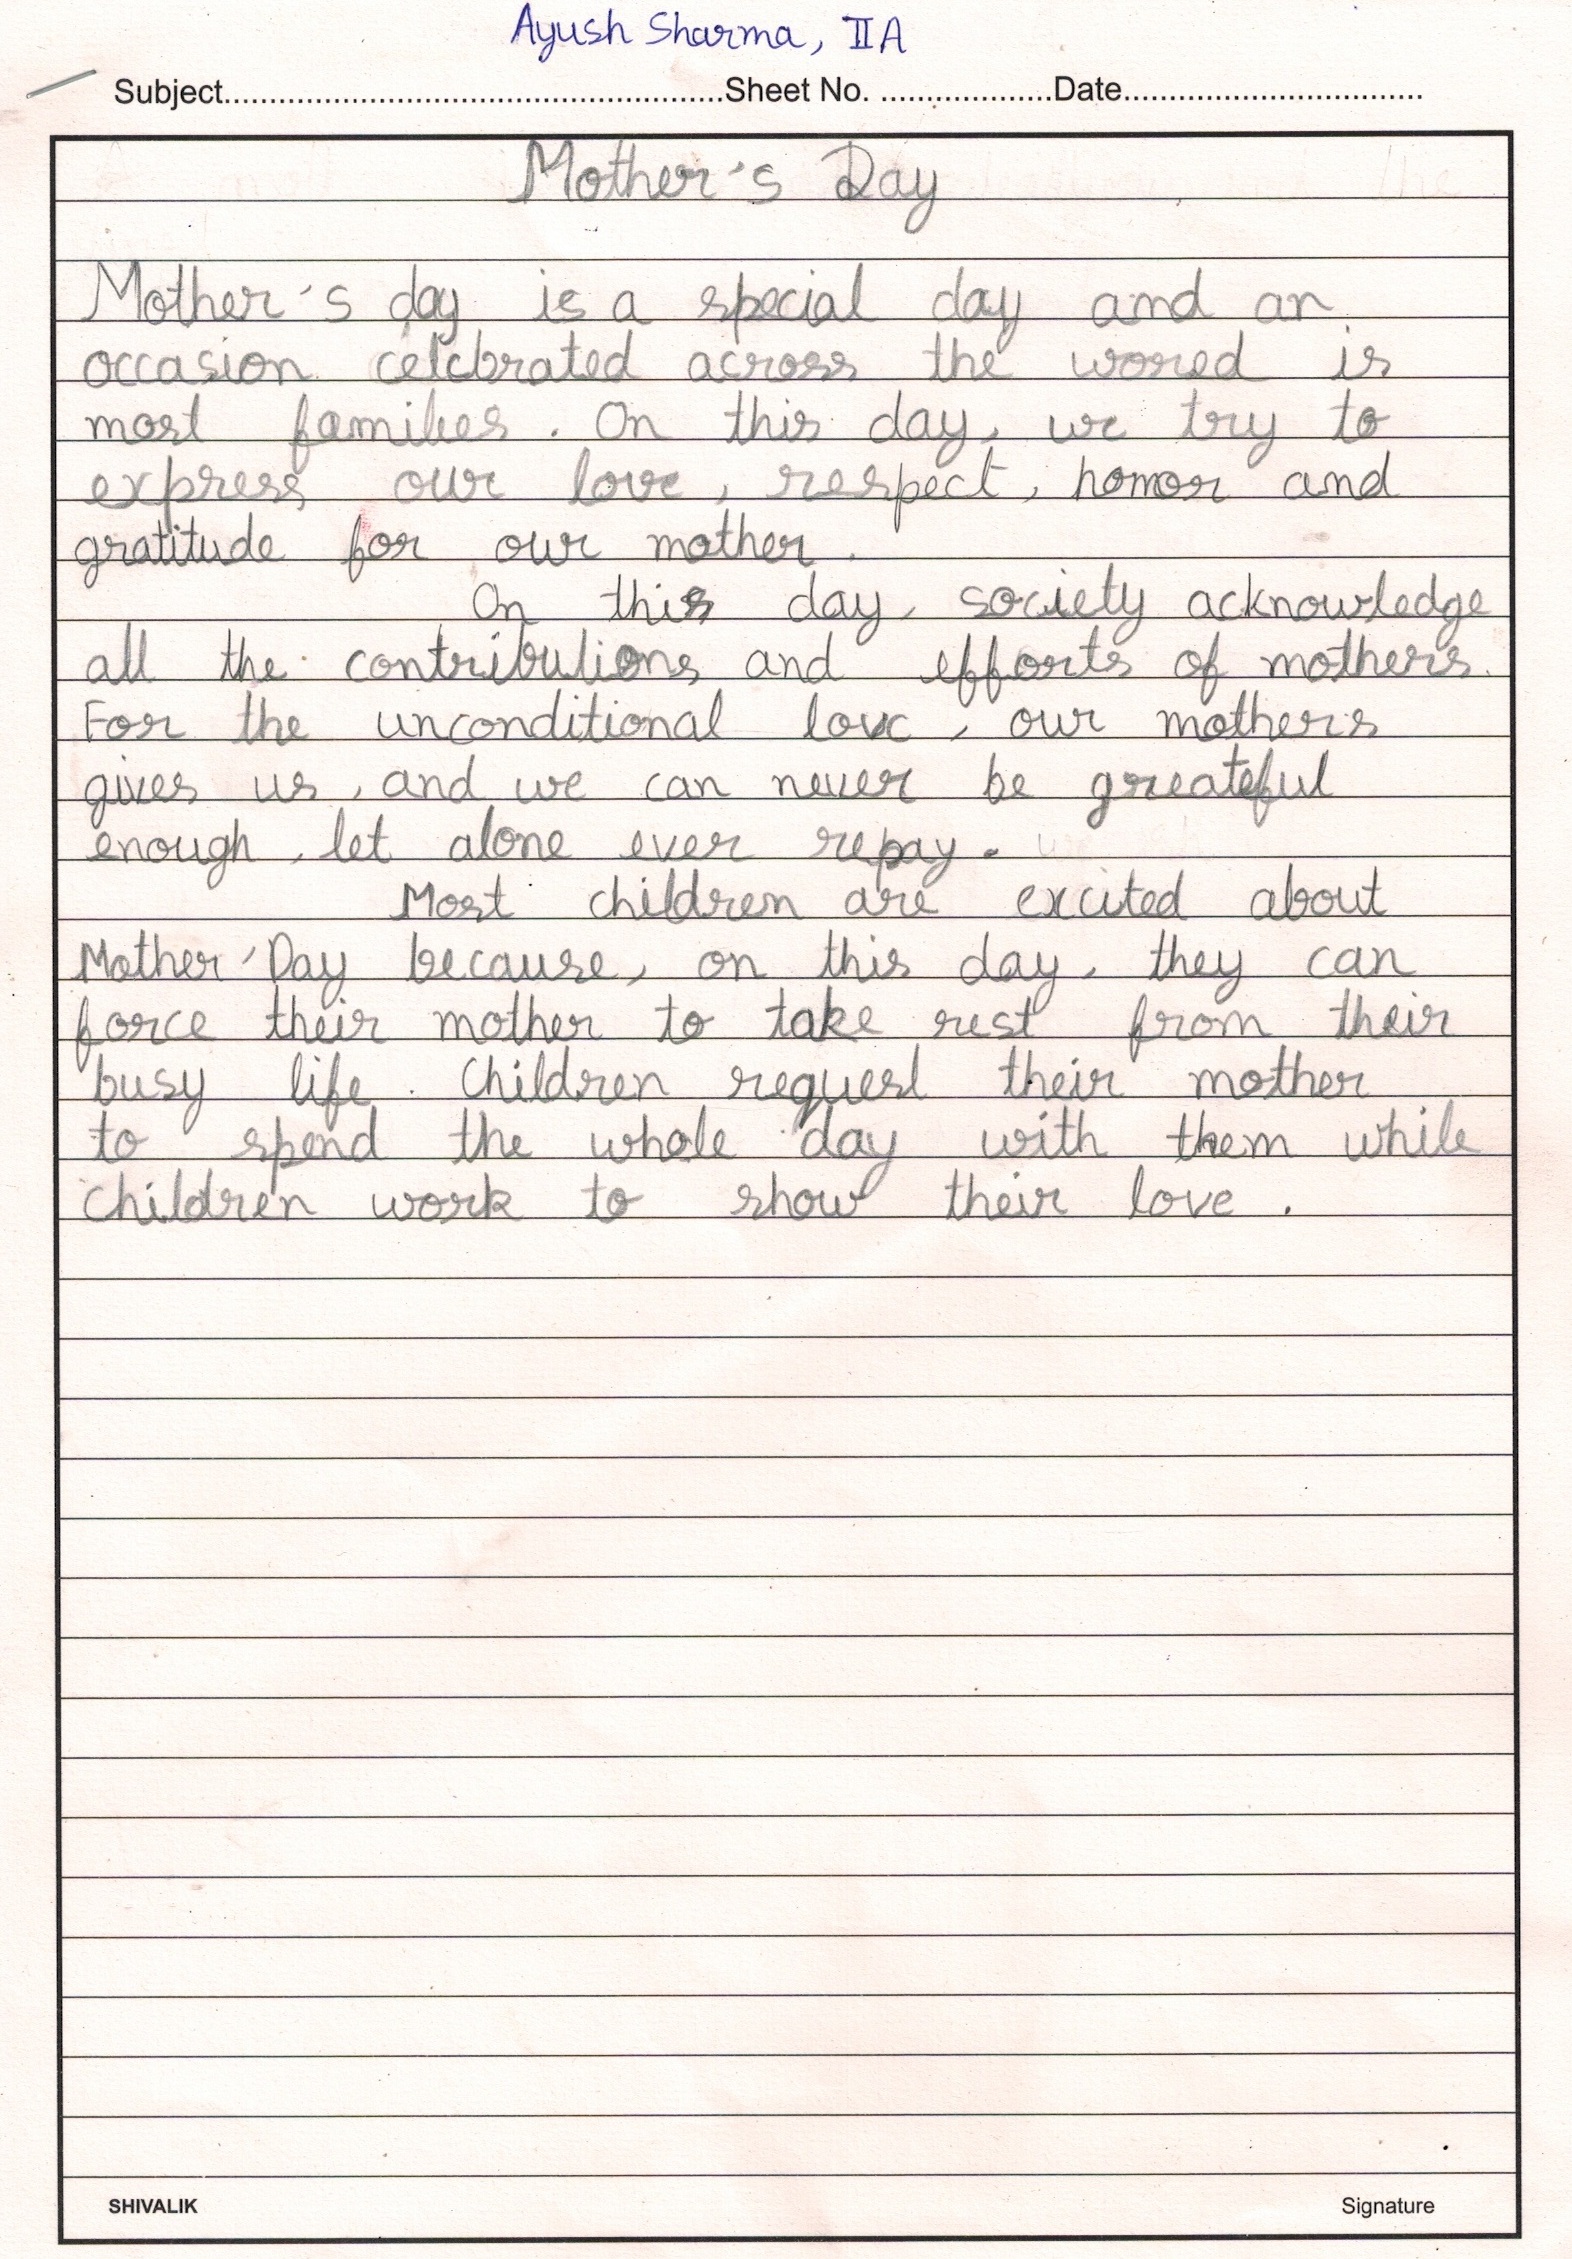 Ayush Sharma, IIA
Subject.......................................................Sheet No. ...................Date.................................
Mother's Day
Mother's day is a special day and an
occasion celebrated across the wored is
most families. On this day, we try to
express our love, respect, homor and
gratitude for our mother.
On this day, society acknowledge
all the contributions and efforts of mothers.
For the unconditional love, our mothers
gives us, and we can never be greateful
enough, let alone ever repay.
Most children are excited about
Mother'Day because, on this day, they can
force their mother to take rest from their
busy life. Children request their mother
to spend the whole day with them while
children work to show their love.
SHIVALIK
Signature